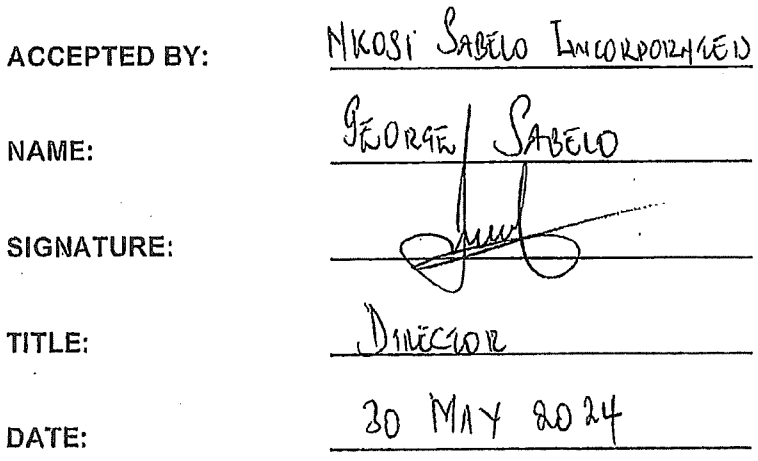 ACCEPTED BY: NKOSI SABELO INCORPORATED
NAME: GEORGE SABELO
SIGNATURE:
TITLE: DIRECTOR
DATE: 30 MAY 2024